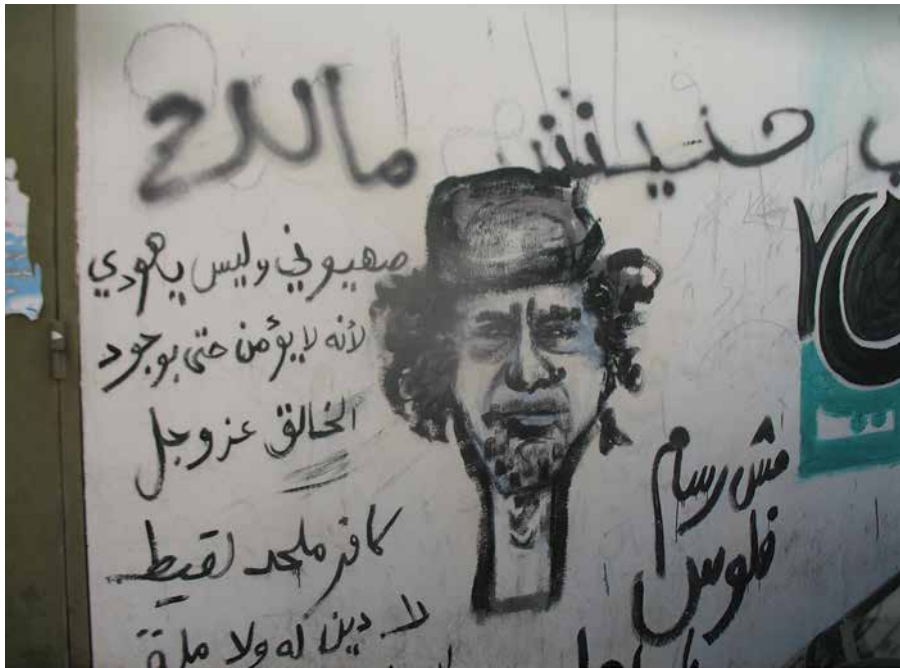 حنيش مالاح
صهيوني وليس ياهودي
لأنه لا يؤمن حتى بوجود
الخالق عز وجل
كافر ملحد لقيط
لا دين له ولا ملة
مش رسام
فلوس